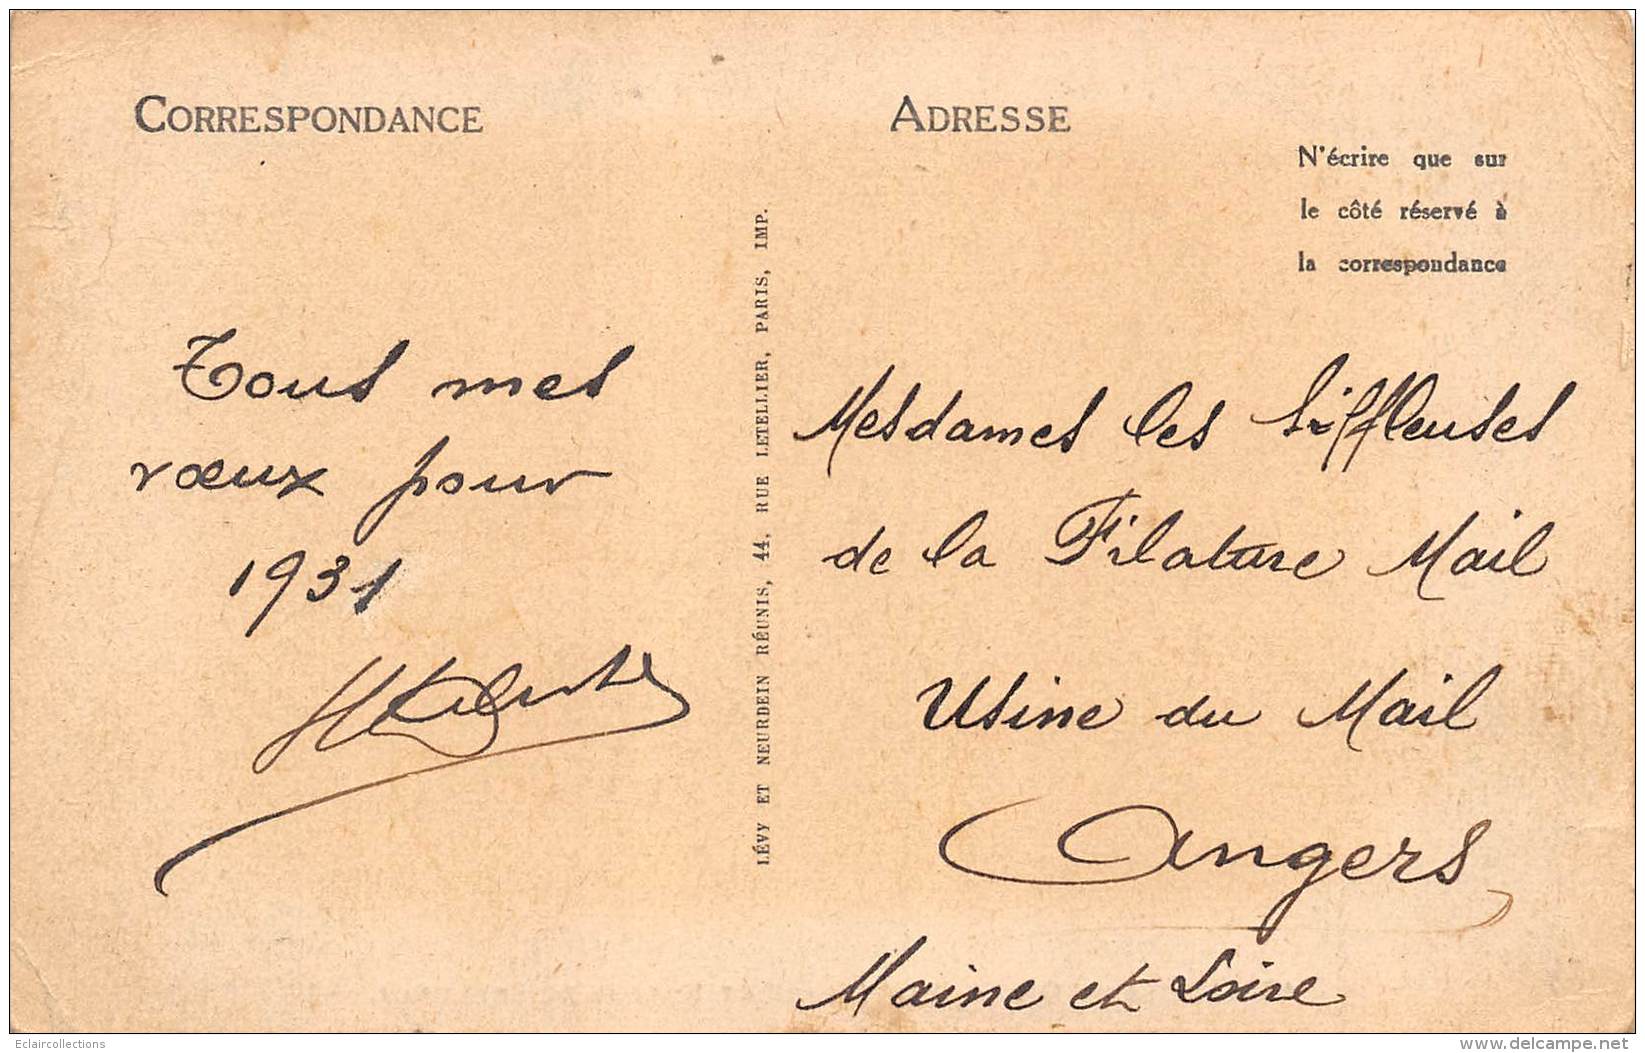 CORRESPONDANCE
Tous mes
vœux pour
1931
LÉVY ET NEURDEIN RÉUNIS, 44, RUE LETELLIER, PARIS, IMP.
ADRESSE
N'écrire que sur
le côté réservé à
la correspondance
Mesdames les Siffleuses
de la Filature Mail
Usine du Mail
Angers
Maine et Loire
Eclaircollections
www.delcampe.net